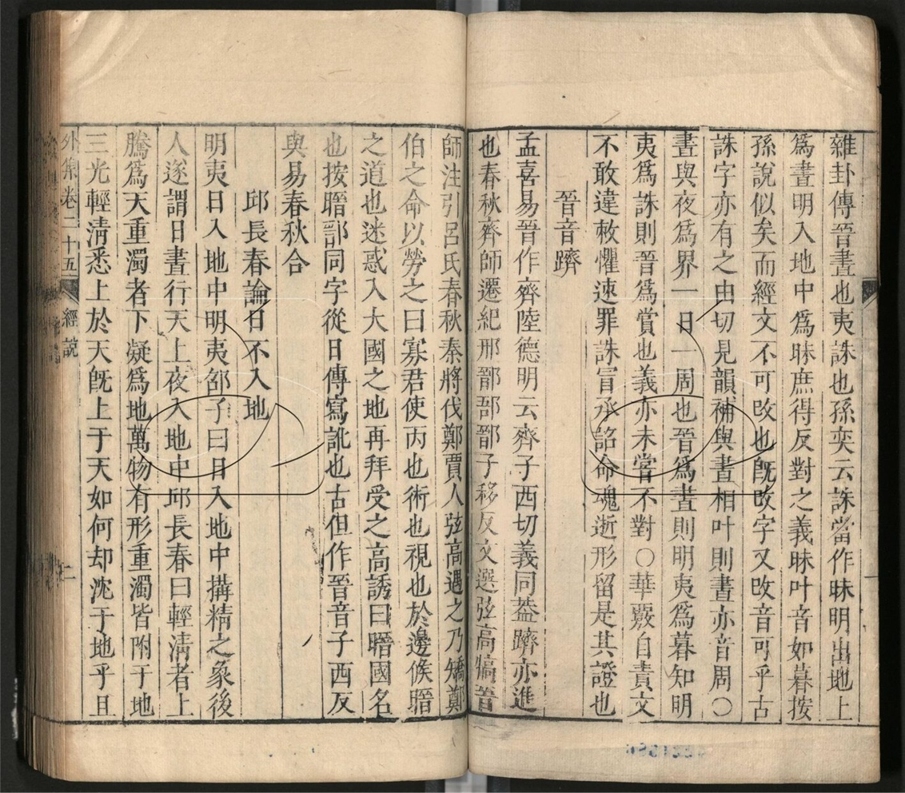 雜卦傳晉晝也夷誅也孫奕云誅當作昧明出地上
為晝明入地中為昧庶得反對之義昧叶音如暮按
孫說似矣而經文不可改也既改字又改音可乎古
誅字亦有之由切見韻補與晝相叶則晝亦音周○
晝與夜為界一日一周也晉為晝則明夷為暮知明
夷為誅則晉為賞也義亦未嘗不對○華覈自責文
不敢違敕懼速罪誅冒承詔命魂逝形留是其證也
晉音躋
孟喜易晉作齊陸德明云齊子西切義同葢躋亦進
也春秋齊師遷紀郱鄑郚鄑子移反文選弦高犒晉
師注引呂氏春秋秦將伐鄭賈人弦高遇之乃矯鄭
伯之命以勞之曰寡君使丙也術也視也於邊候㬜
之道也迷惑入大國之地再拜受之高誘曰㬜國名
也按㬜鄑同字從日傳寫訛也古但作晉音子西反
與易春秋合
邱長春論日不入地
明夷日入地中明夷邵子曰日入地中搆精之象後
人遂謂日晝行天上夜入地中邱長春曰輕淸者上
騰爲天重濁者下凝爲地萬物有形重濁皆附于地
三光輕淸悉上於天旣上于天如何却沈于地乎且
外集卷二十五 經說 二